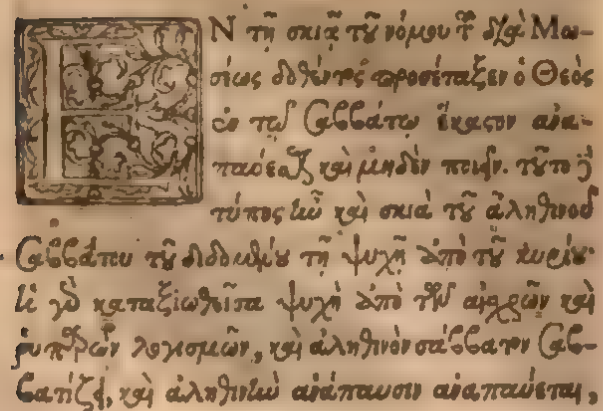 ΕΝ τῇ σκιᾷ τοῦ νόμου τοῦ διὰ Μω-
σέως δοθέντος προσέταξεν ὁ Θεὸς
ἐν τῷ Σαββάτῳ ἕκαστον ἀνα-
παύεσθαι καὶ μηδὲν ποιεῖν. τοῦτο δὲ
τύπος ἦν καὶ σκιὰ τοῦ ἀληθινοῦ
Σαββάτου τοῦ διδομένου τῇ ψυχῇ ἀπὸ τοῦ κυρίου·
ἡ γὰρ καταξιωθεῖσα ψυχὴ ἀπὸ τῶν αἰσχρῶν καὶ
ῥυπαρῶν λογισμῶν, καὶ ἀληθινὸν σάββατον Σαβ-
βατίζει, καὶ ἀληθινὴν ἀνάπαυσιν ἀναπαύεται,